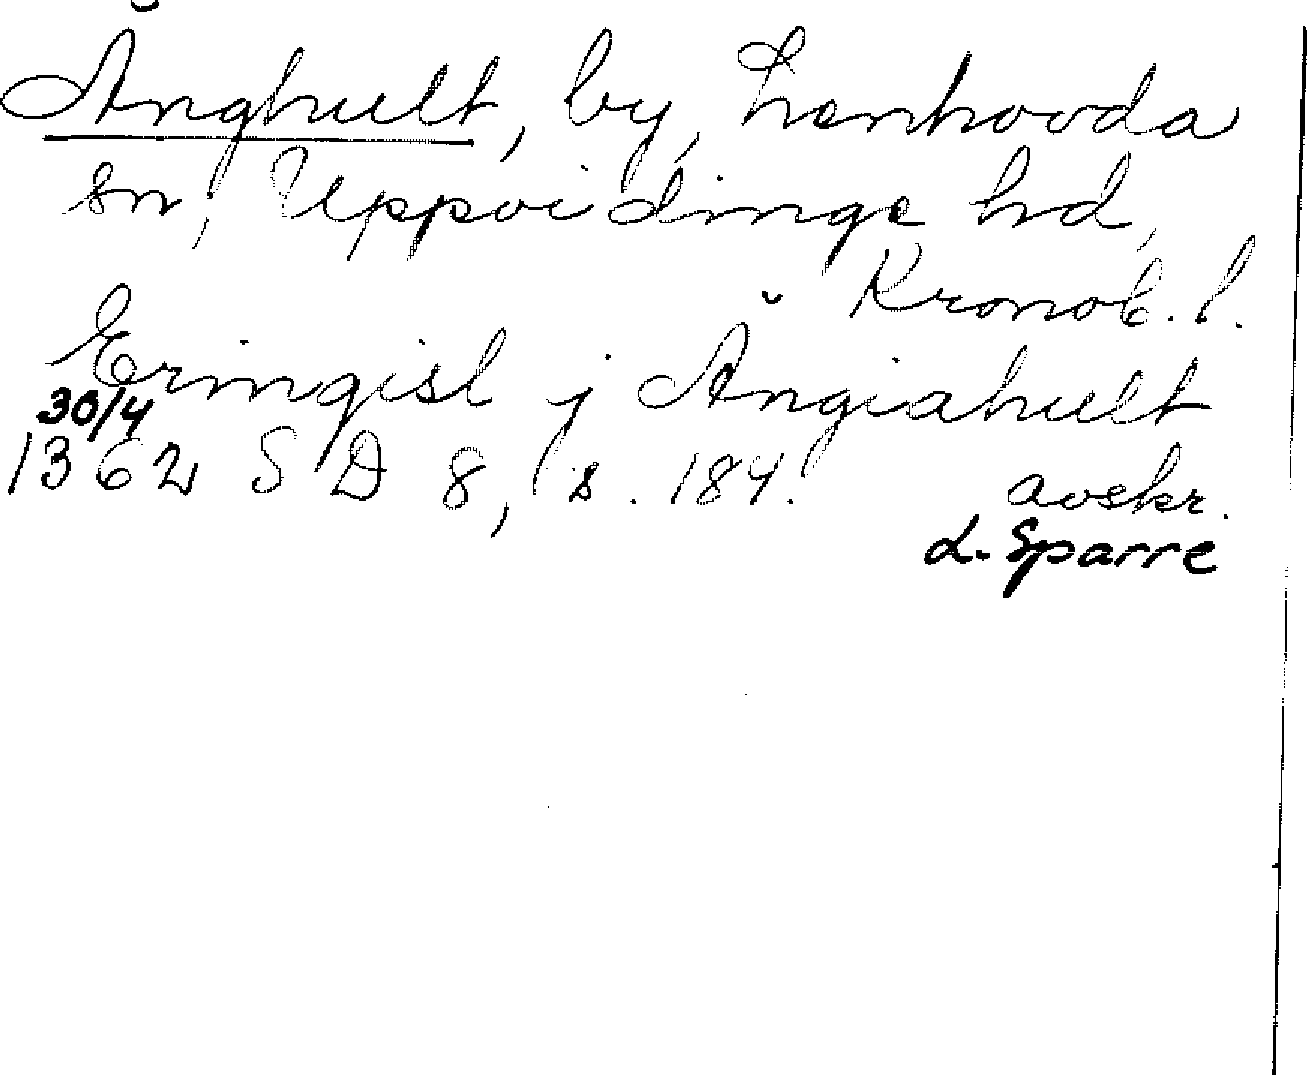 Änghult, by, Lenhovda
sn, Uppvidinge hd,
Kronob. l.
Eringisl j Ängiahult
30/4
1362 SD 8, s. 184. avskr.
L. Sparre